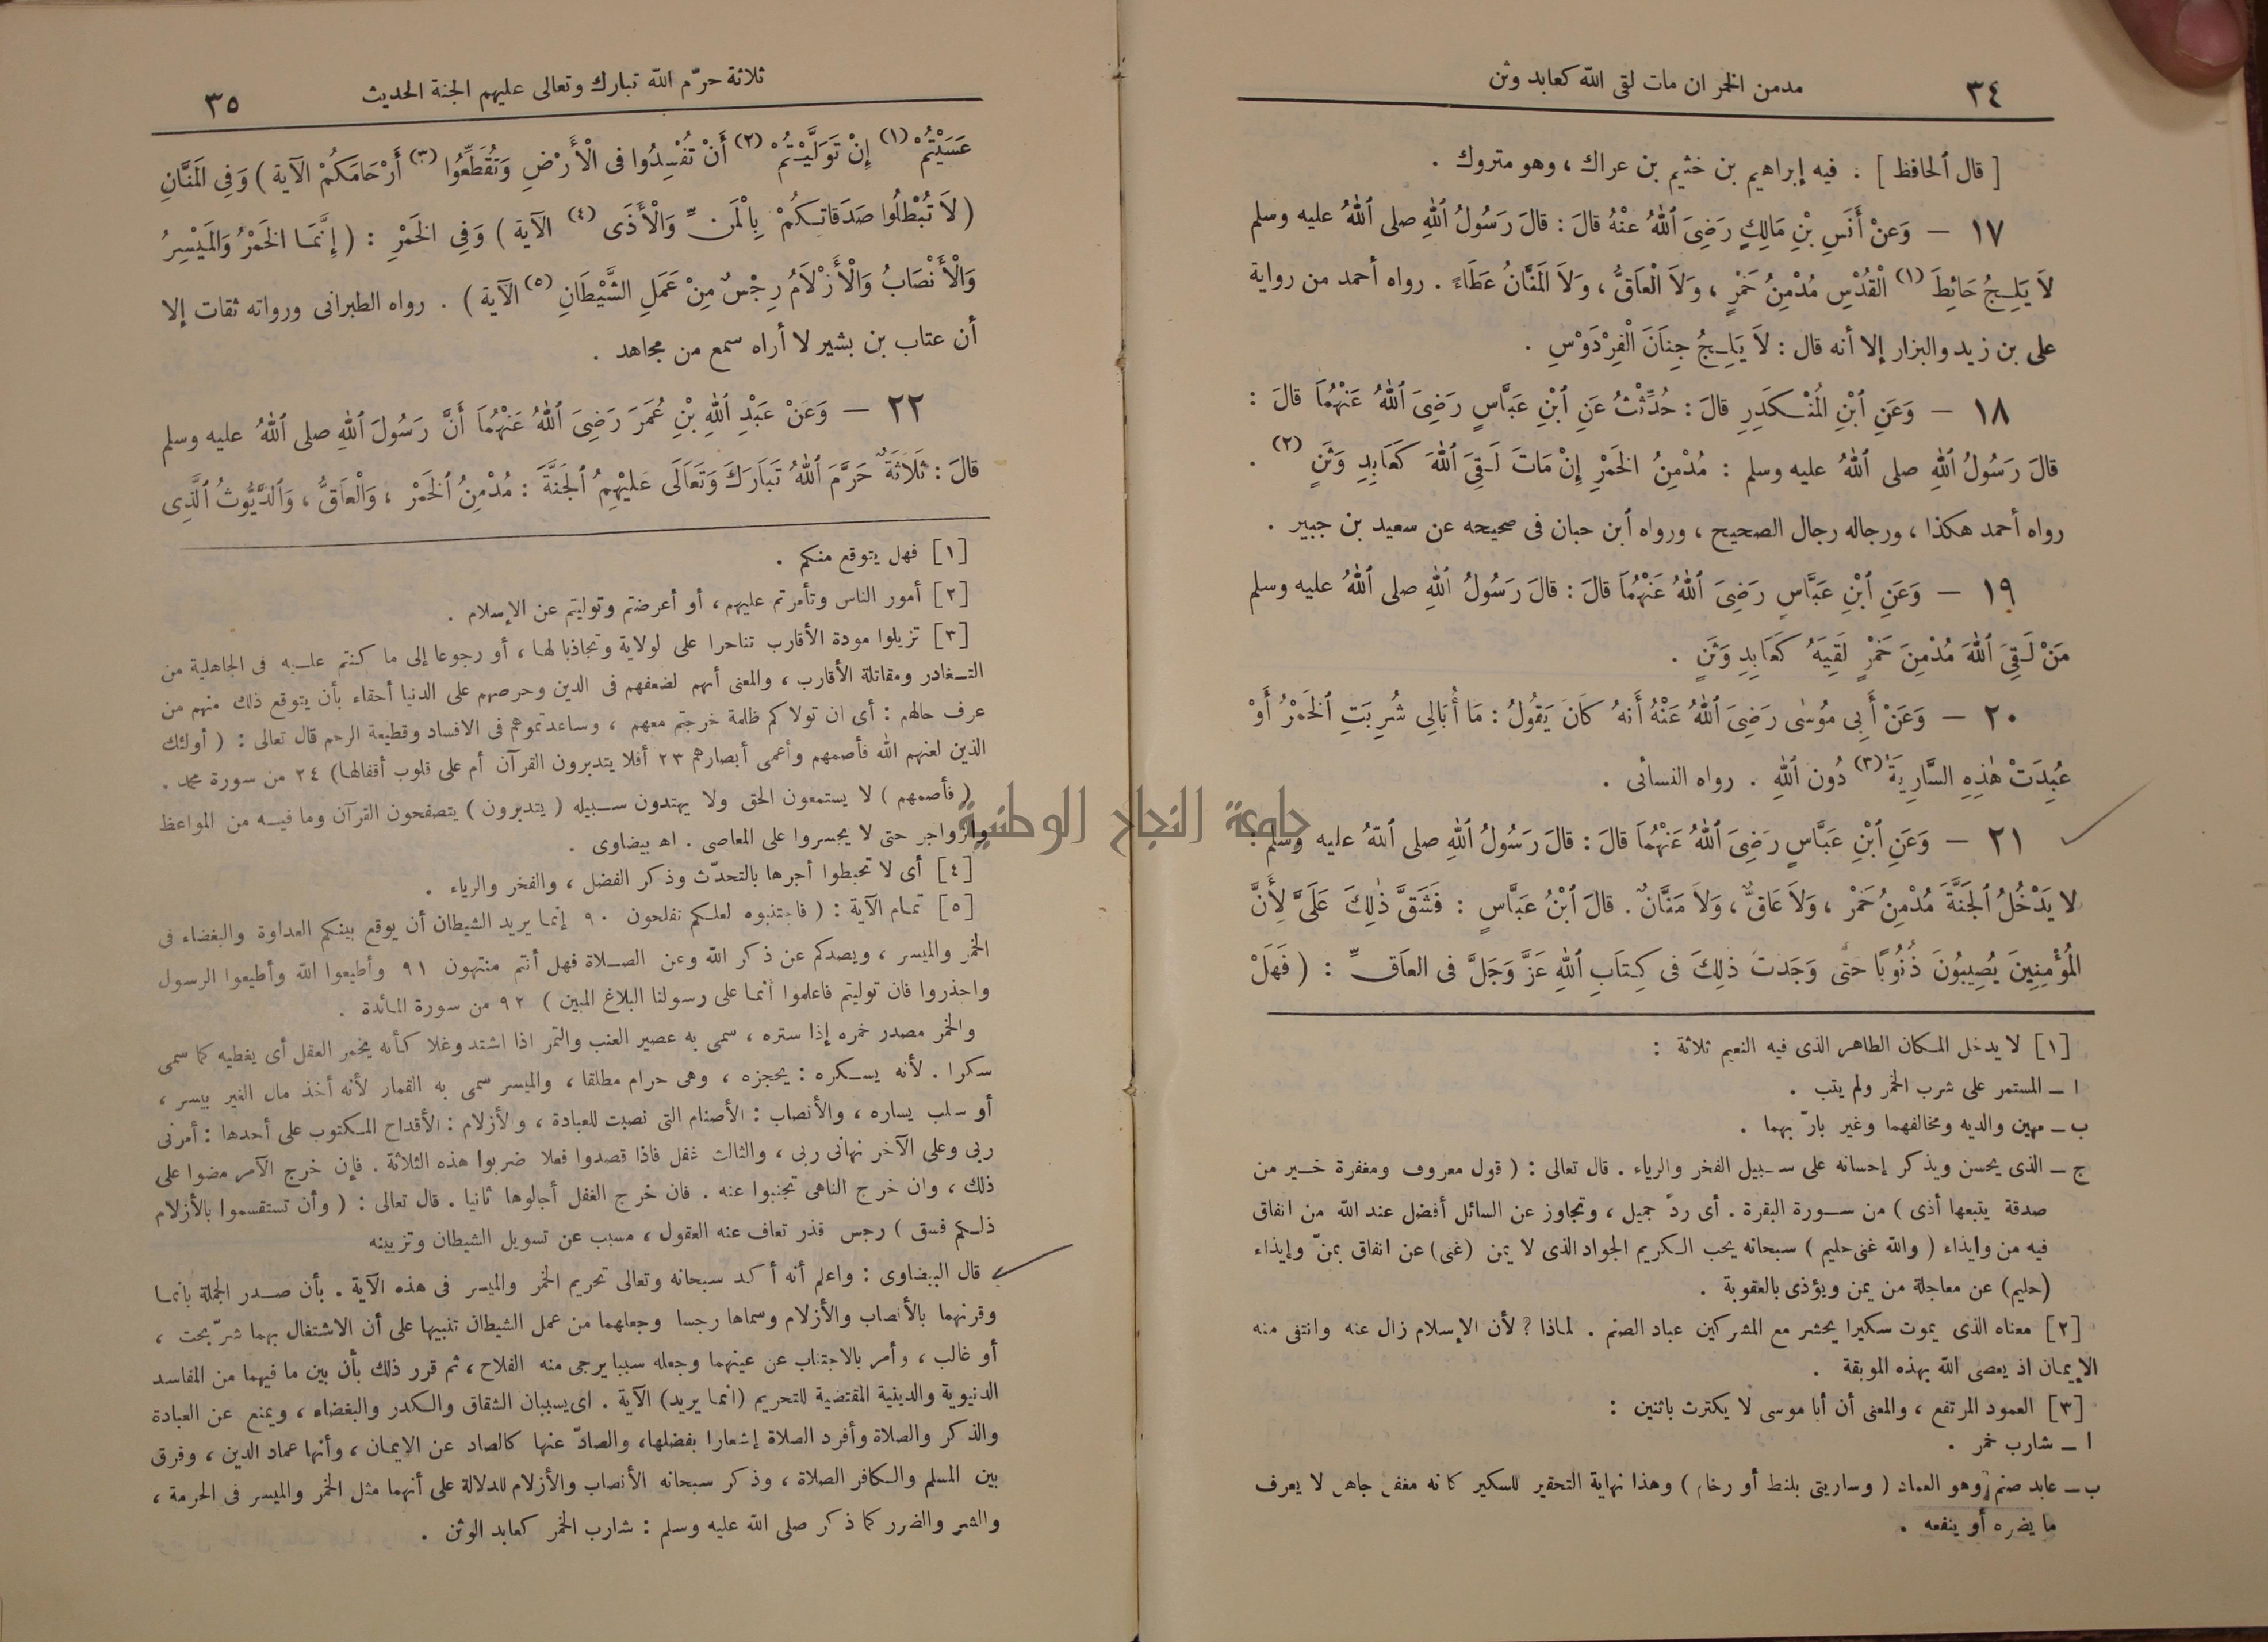 ٣٤
مدمن الخمر ان مات لقى الله كعابد وثن
[ قال ٱلحافظ ] . فيه إبراهيم بن خثيم بن عراك ، وهو متروك .
١٧ — وَعَنْ أَنَسِ بْنِ مَالِكٍ رَضِىَ ٱللهُ عَنْهُ قالَ : قالَ رَسُولُ ٱللهِ صلى ٱللهُ عليه وسلم
لاَ يَلِجُ حَائِطَ (١) الْقُدْسِ مُدْمِنُ خَمْرٍ ، وَلاَ الْعَاقُّ ، وَلاَ المَنَّانُ عَطَاءً . رواه أحمد من رواية
على بن زيد والبزار إلا أنه قال : لاَ يَلِجُ جِنَانَ الْفِرْدَوْسِ .
١٨ — وَعَنِ ٱبْنِ المُنْكَدِرِ قالَ : حُدِّثْتُ عَنِ ٱبْنِ عَبَّاسٍ رَضِىَ ٱللهُ عَنْهُمَا قالَ :
قالَ رَسُولُ ٱللهِ صلى ٱللهُ عليه وسلم : مُدْمِنُ الخَمْرِ إِنْ مَاتَ لَقِىَ ٱللهَ كَعَابِدِ وَثَنٍ (٢) .
رواه أحمد هكذا ، ورجاله رجال الصحيح ، ورواه ٱبن حبان فى صحيحه عن سعيد بن جبير .
١٩ — وَعَنِ ٱبْنِ عَبَّاسٍ رَضِىَ ٱللهُ عَنْهُمَا قالَ : قالَ رَسُولُ ٱللهِ صلى ٱللهُ عليه وسلم
مَنْ لَقِىَ ٱللهَ مُدْمِنَ خَمْرٍ لَقِيَهُ كَعَابِدِ وَثَنٍ .
٢٠ — وَعَنْ أَبِى مُوسٰى رَضِىَ ٱللهُ عَنْهُ أَنهُ كَانَ يَقُولُ : مَا أُبَالِى شُرِبَتِ ٱلخَمْرُ أَوْ
عُبِدَتْ هٰذِهِ السَّارِيَةُ (٣) دُونَ ٱللهِ . رواه النسائى .
٢١ — وَعَنِ ٱبْنِ عَبَّاسٍ رَضِىَ ٱللهُ عَنْهُمَا قالَ : قالَ رَسُولُ ٱللهِ صلى ٱللهُ عليه وسلم :
لا يَدْخُلُ ٱلجَنَّةَ مُدْمِنُ خَمْرٍ ، وَلاَ عَاقٌّ ، وَلاَ مَنَّانٌ . قالَ ٱبْنُ عَبَّاسٍ : فَشَقَّ ذٰلِكَ عَلَىَّ لِأَنَّ
المُؤْمِنِينَ يُصِيبُونَ ذُنُوبًا حتَّى وَجَدتُ ذلِكَ فى كِتَابِ ٱللهِ عَزَّ وَجَلَّ فى العَاقِّ : ( فَهَلْ
[١] لا يدخل المكان الطاهر الذى فيه النعيم ثلاثة :
ا — المستمر على شرب الخمر ولم يتب .
ب — مهين والديه ومخالفهما وغير بارّ بهما .
ج — الذى يحسن ويذكر إحسانه على سبيل الفخر والرياء . قال تعالى : ( قول معروف ومغفرة خير من
صدقة يتبعها أذى ) من سورة البقرة . أى ردّ جميل ، وتجاوز عن السائل أفضل عند الله من انفاق
فيه من وإيذاء ( والله غنى حليم ) سبحانه يحب الكريم الجواد الذى لا يمن (غنى) عن انفاق بمنّ وإيذاء
(حليم) عن معاجلة من يمن ويؤذى بالعقوبة .
[٢] معناه الذى يموت سكيرا يحشر مع المشركين عباد الصنم . لماذا ؟ لأن الإسلام زال عنه وانتفى منه
الإيمان اذ يعصى الله بهذه الموبقة .
[٣] العمود المرتفع ، والمعنى أن أبا موسى لا يكترث باثنين :
ا — شارب خمر .
ب — عابد صنم وهو العماد ( وساريتى بلنط أو رخام ) وهذا نهاية التحقير للسكير كانه مغفل جاهل لا يعرف
ما يضره أو ينفعه .
ثلاثة حرّم الله تبارك وتعالى عليهم الجنة الحديث
٣٥
عَسَيْتُمْ (١) إِنْ تَوَلَّيْتُمْ (٢) أَنْ تُفْسِدُوا فى الْأَرْضِ وَتُقَطِّعُوا (٣) أَرْحَامَكُمْ الآية ) وَفِى المَنَّانِ
( لاَ تُبْطِلُوا صَدَقاتِكُمْ بِالْمَنِّ وَالْأَذَى (٤) الآية ) وَفِى الخَمْرِ : ( إِنَّمَا الخَمْرُ وَالمَيْسِرُ
وَالْأَنْصَابُ وَالْأَزْلاَمُ رِجْسٌ مِنْ عَمَلِ الشَّيْطَانِ (٥) الآية ) . رواه الطبرانى ورواته ثقات إلا
أن عتاب بن بشير لا أراه سمع من مجاهد .
٢٢ — وَعَنْ عَبْدِ ٱللهِ بْنِ عُمَرَ رَضِىَ ٱللهُ عَنْهُمَا أَنَّ رَسُولَ ٱللهِ صلى ٱللهُ عليه وسلم
قالَ : ثَلاَثَةٌ حَرَّمَ ٱللهُ تَبَارَكَ وَتَعَالَى عَلَيْهِمُ ٱلجَنَّةَ : مُدْمِنُ ٱلخَمْرِ ، وَالْعَاقُّ ، وَٱلدَّيُّوثُ ٱلَّذِى
[١] فهل يتوقع منكم .
[٢] أمور الناس وتأمرتم عليهم ، أو أعرضتم وتوليتم عن الإسلام .
[٣] تزيلوا مودة الأقارب تناحرا على لولاية وتجاذبا لها ، أو رجوعا إلى ما كنتم عليه فى الجاهلية من
التغادر ومقاتلة الأقارب ، والمعنى أنهم لضعفهم فى الدين وحرصهم على الدنيا أحقاء بأن يتوقع ذلك منهم من
عرف حالهم : أى ان تولاكم ظلمة خرجتم معهم ، وساعدتموهم فى الافساد وقطيعة الرحم قال تعالى : ( أولئك
الذين لعنهم الله فأصمهم وأعمى أبصارهم ٢٣ أفلا يتدبرون القرآن أم على قلوب أقفالها) ٢٤ من سورة محمد .
( فأصمهم ) لا يستمعون الحق ولا يهتدون سبيله ( يتدبرون ) يتصفحون القرآن وما فيه من المواعظ
والزواجر حتى لا يجسروا على المعاصى . اه بيضاوى .
[٤] أى لا تحبطوا أجرها بالتحدّث وذكر الفضل ، والفخر والرياء .
[٥] تمام الآية : ( فاجتنبوه لعلكم تفلحون ٩٠ إنما يريد الشيطان أن يوقع بينكم العداوة والبغضاء فى
الخمر والميسر ، ويصدكم عن ذكر الله وعن الصلاة فهل أنتم منتهون ٩١ وأطيعوا الله وأطيعوا الرسول
واحذروا فان توليتم فاعلموا أنما على رسولنا البلاغ المبين ) ٩٢ من سورة المائدة .
والخمر مصدر خمره إذا ستره ، سمى به عصير العنب والتمر اذا اشتد وغلا كأنه يخمر العقل أى يغطيه كما سمى
سكرا . لأنه يسكره : يحجزه ، وهى حرام مطلقا ، والميسر سمى به القمار لأنه أخذ مال الغير بيسر ،
أو سلب يساره ، والأنصاب : الأصنام التى نصبت للعبادة ، والأزلام : الأقداح المكتوب على أحدها : أمرنى
ربى وعلى الآخر نهانى ربى ، والثالث غفل فاذا قصدوا فعلا ضربوا هذه الثلاثة . فإن خرج الآمر مضوا على
ذلك ، وان خرج الناهى تجنبوا عنه . فان خرج الغفل أجالوها ثانيا . قال تعالى : ( وأن تستقسموا بالأزلام
ذلكم فسق ) رجس قذر تعاف عنه العقول ، مسبب عن تسويل الشيطان وتزيينه
قال البيضاوى : واعلم أنه أكد سبحانه وتعالى تحريم الخمر والميسر فى هذه الآية . بأن صدر الجملة بانما
وقرنهما بالأنصاب والأزلام وسماها رجسا وجعلهما من عمل الشيطان تنبيها على أن الاشتغال بهما شرّ بحت ،
أو غالب ، وأمر بالاجتناب عن عينهما وجعله سببا يرجى منه الفلاح ، ثم قرر ذلك بأن بين ما فيهما من المفاسد
الدنيوية والدينية المقتضية للتحريم (انما يريد) الآية . اى يسببان الشقاق والكدر والبغضاء ، ويمنع عن العبادة
والذكر والصلاة وأفرد الصلاة إشعارا بفضلها ، والصادّ عنها كالصاد عن الإيمان ، وأنها عماد الدين ، وفرق
بين المسلم والكافر الصلاة ، وذكر سبحانه الأنصاب والأزلام للدلالة على أنهما مثل الخمر والميسر فى الحرمة ،
والشر والضرر كما ذكر صلى الله عليه وسلم : شارب الخمر كعابد الوثن .
جامعة النجاح الوطنية